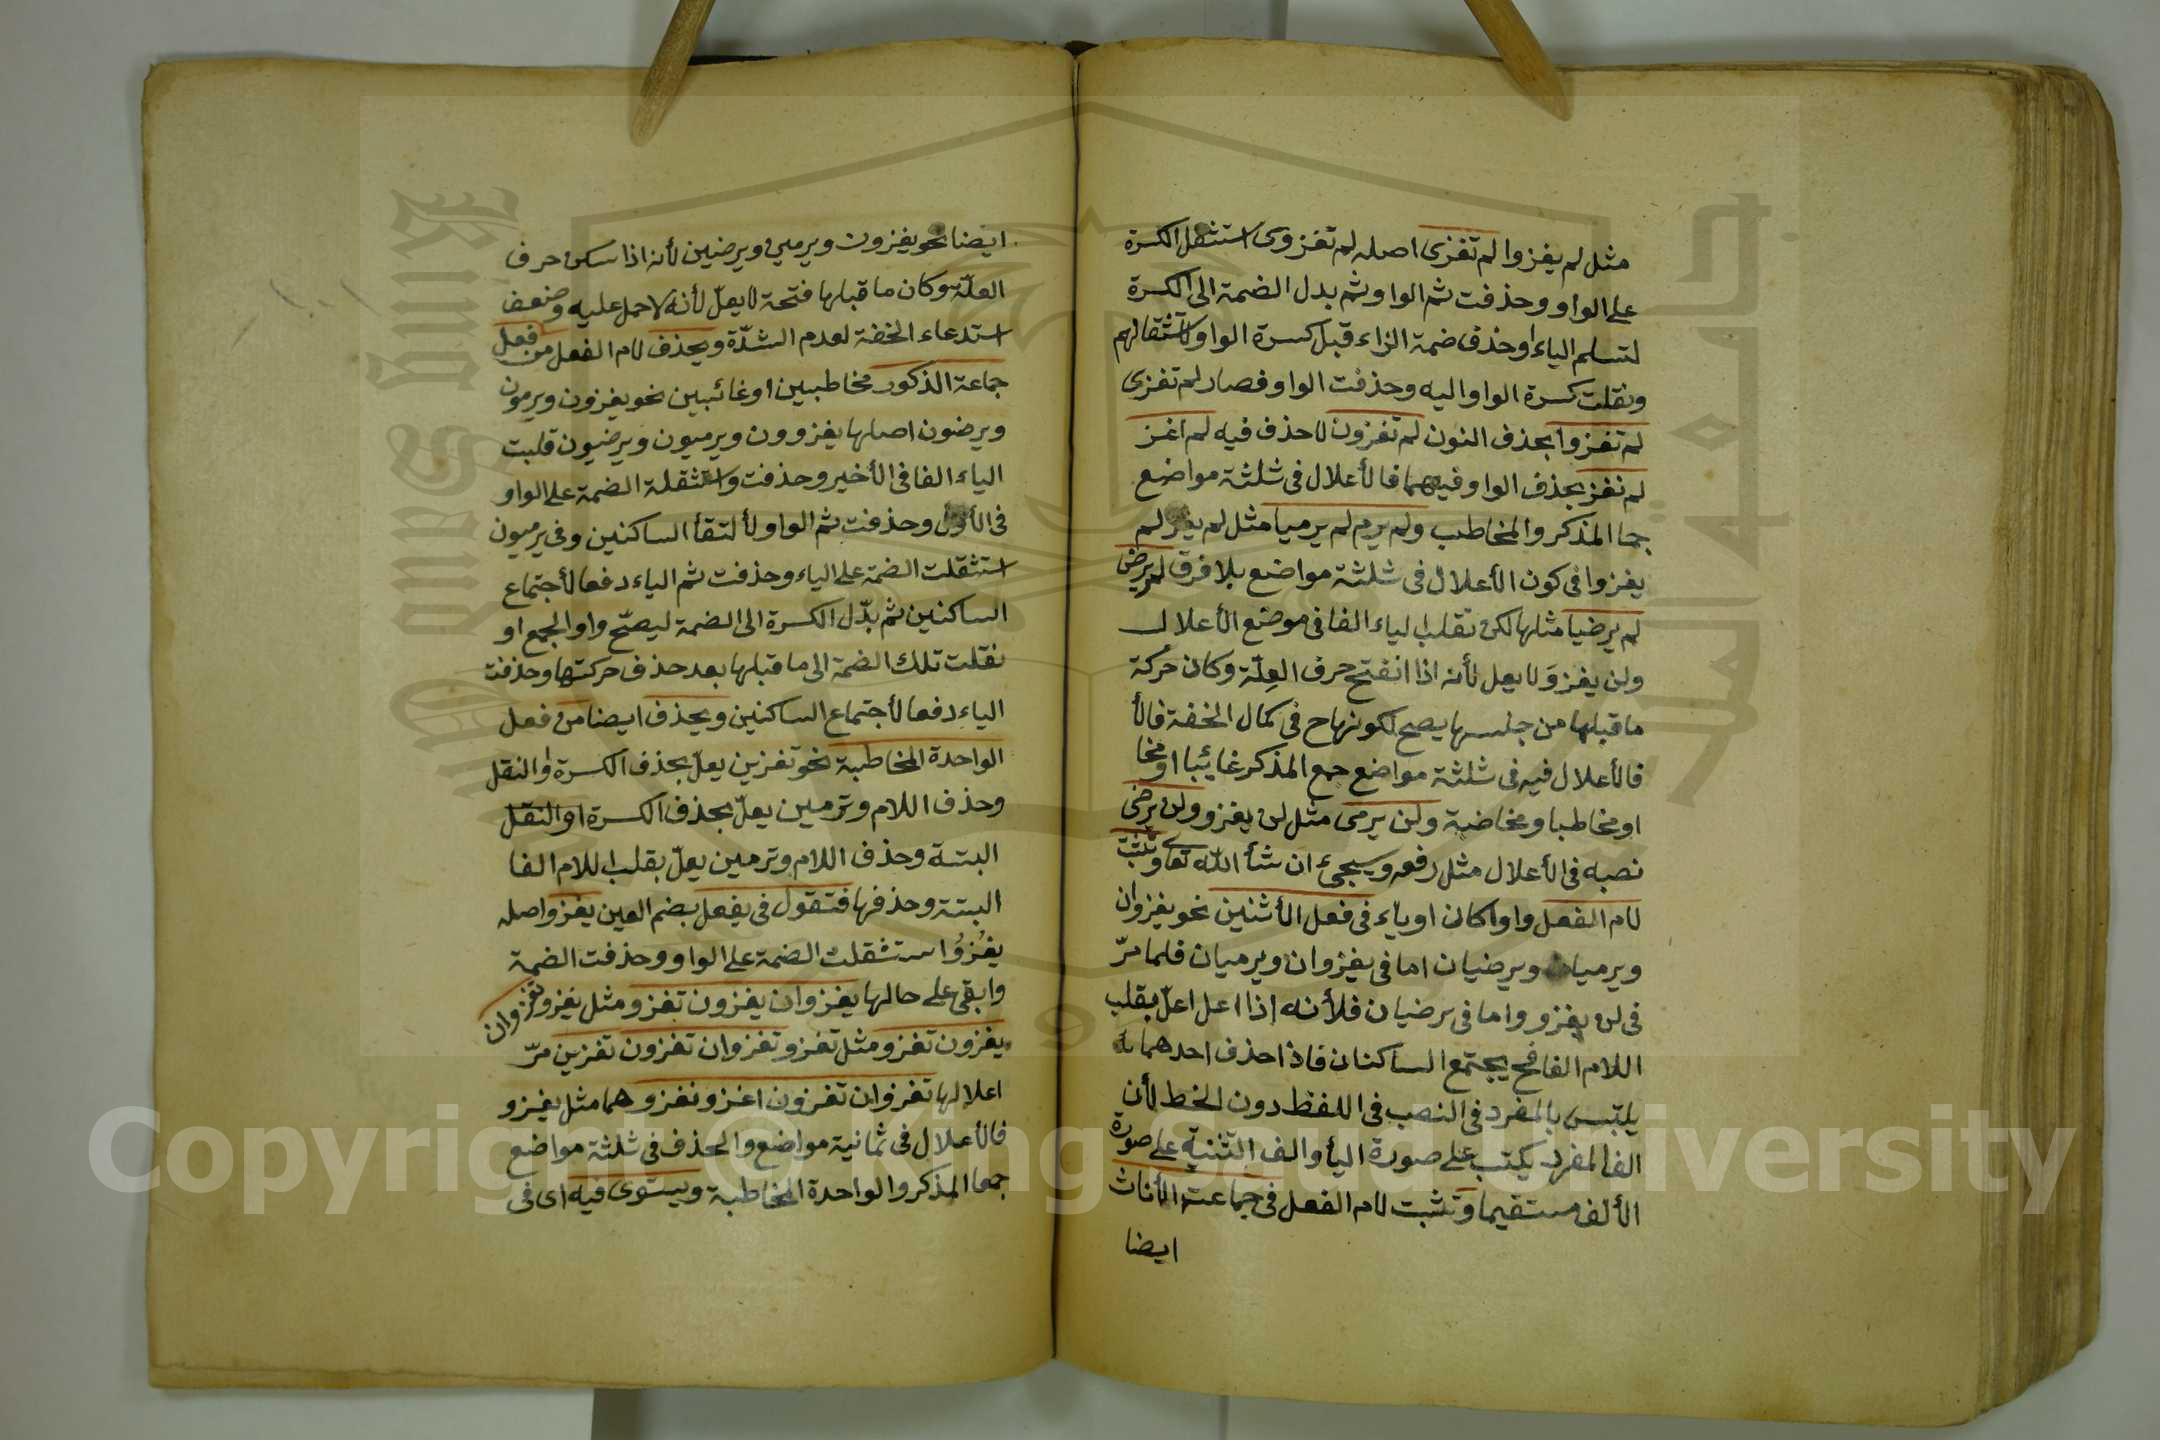 مثل لم يغزوا لم تغزى اصله لم تغزوى استثقل الكسرة
على الواو وحذفت ثم الواو ثم بدل الضمة الى الكسرة
لتسلم الياء اوحذف ضمة الزاء قبل كسرة الواو لاستثقالهم
ونقلت كسرة الواو اليه وحذفت الواو فصار لم تغزى
لم تغزوا بحذف النون لم تغزون لا حذف فيه لم اغز
لم نغز بحذف الواو فيهما فالأعلال فى ثلثة مواضع
جما المذكر والمخاطب ولم يرم لم يرميا مثل لم يغز لم
يغزوا فى كون الأعلال فى ثلثة مواضع بلا فرق لم يرض
لم يرضيا مثلها لكن تقلب الياء الفا فى موضع الأعلال
ولن يغزوَ لا يعل لأنه اذا انفتح حرف العِلّة وكان حركة
ما قبلها من جنسها يصح لكونها ح فى كمال الخفة فالأ
فالأعلال فيه فى ثلثة مواضع جمع المذكر غائبا او مخا
او مخاطبا ومخاضبة ولن يرمى مثل لن يغزو ولن يرضى
نصبه فى الأعلال مثل رفعه وسيجئ ان شأ الله تعا وتثبت
لام الفعل واوا كان او ياء فى فعل الأثنين نحو يغزوان
ويرميان ويرضيان اما فى يغزوان ويرميان فلما مرّ
فى لن يغزو واما فى يرضيان فلأنه اذا اعل اعلّ بقلب
اللام الفا فح يجتمع الساكنان فاذا حذف احدهما
يلتبس بالمفرد فى النصب فى اللفظ دون الخط لأن
الف المفرد يكتب على صورة اليأ والف التثنية على صورة
الألف مستقيما وتثبت لام الفعل فى جماعت الأناث
ايضا
ايضا نحو يغزون ويرمين ويرضين لأنه اذا سكن حرف
العلّة وكان ما قبلها فتحة لا يعلّ لأنه لا حمل عليه وضعف
استدعاء الخفة لعدم الشدّة ويحذف لام الفعل من فعل
جماعة الذكور مخاطبين او غائبين نحو يغزون ويرمون
ويرضون اصلها يغزوون ويرميون ويرضيون قلبت
الياء الفا فى الأخير وحذفت واستثقلة الضمة على الواو
فى الأول وحذفت ثم الواو لألتقأ الساكنين وفى يرميون
استثقلت الضمة على الياء وحذفت ثم الياء دفعا لأجتماع
الساكنين ثم بدّل الكسرة الى الضمة ليصحّ واو الجمع او
نقلت تلك الضمة الى ما قبلها بعد حذف حركتها وحذفت
الياء دفعا لأجتماع الساكنين ويحذف ايضا من فعل
الواحدة المخاطبة نحو تغزين يعلّ بحذف الكسرة والنقل
وحذف اللام وترمين يعلّ بحذف الكسرة او النقل
البتة وحذف اللام وترمين يعلّ بقلب اللام الفا
البتة وحذفها فتقول فى يفعل بضم العين يغزو اصله
يغْزُوُ استثقلت الضمة على الواو وحذفت الضمة
وابقى على حالها يغزوان يغزون تغزو مثل يغزو تغزوان
يغزون تغزو مثل تغزو تغزوان تغزون تغزين مرّ
اعلالها تغزوان تغزون اغزو نغزو هما مثل يغزو
فالأعلال فى ثمانية مواضع والحذف فى ثلثة مواضع
جمعا المذكر والواحدة المخاطبة ويستوى فيه اى فى
Copyright © King Saud University